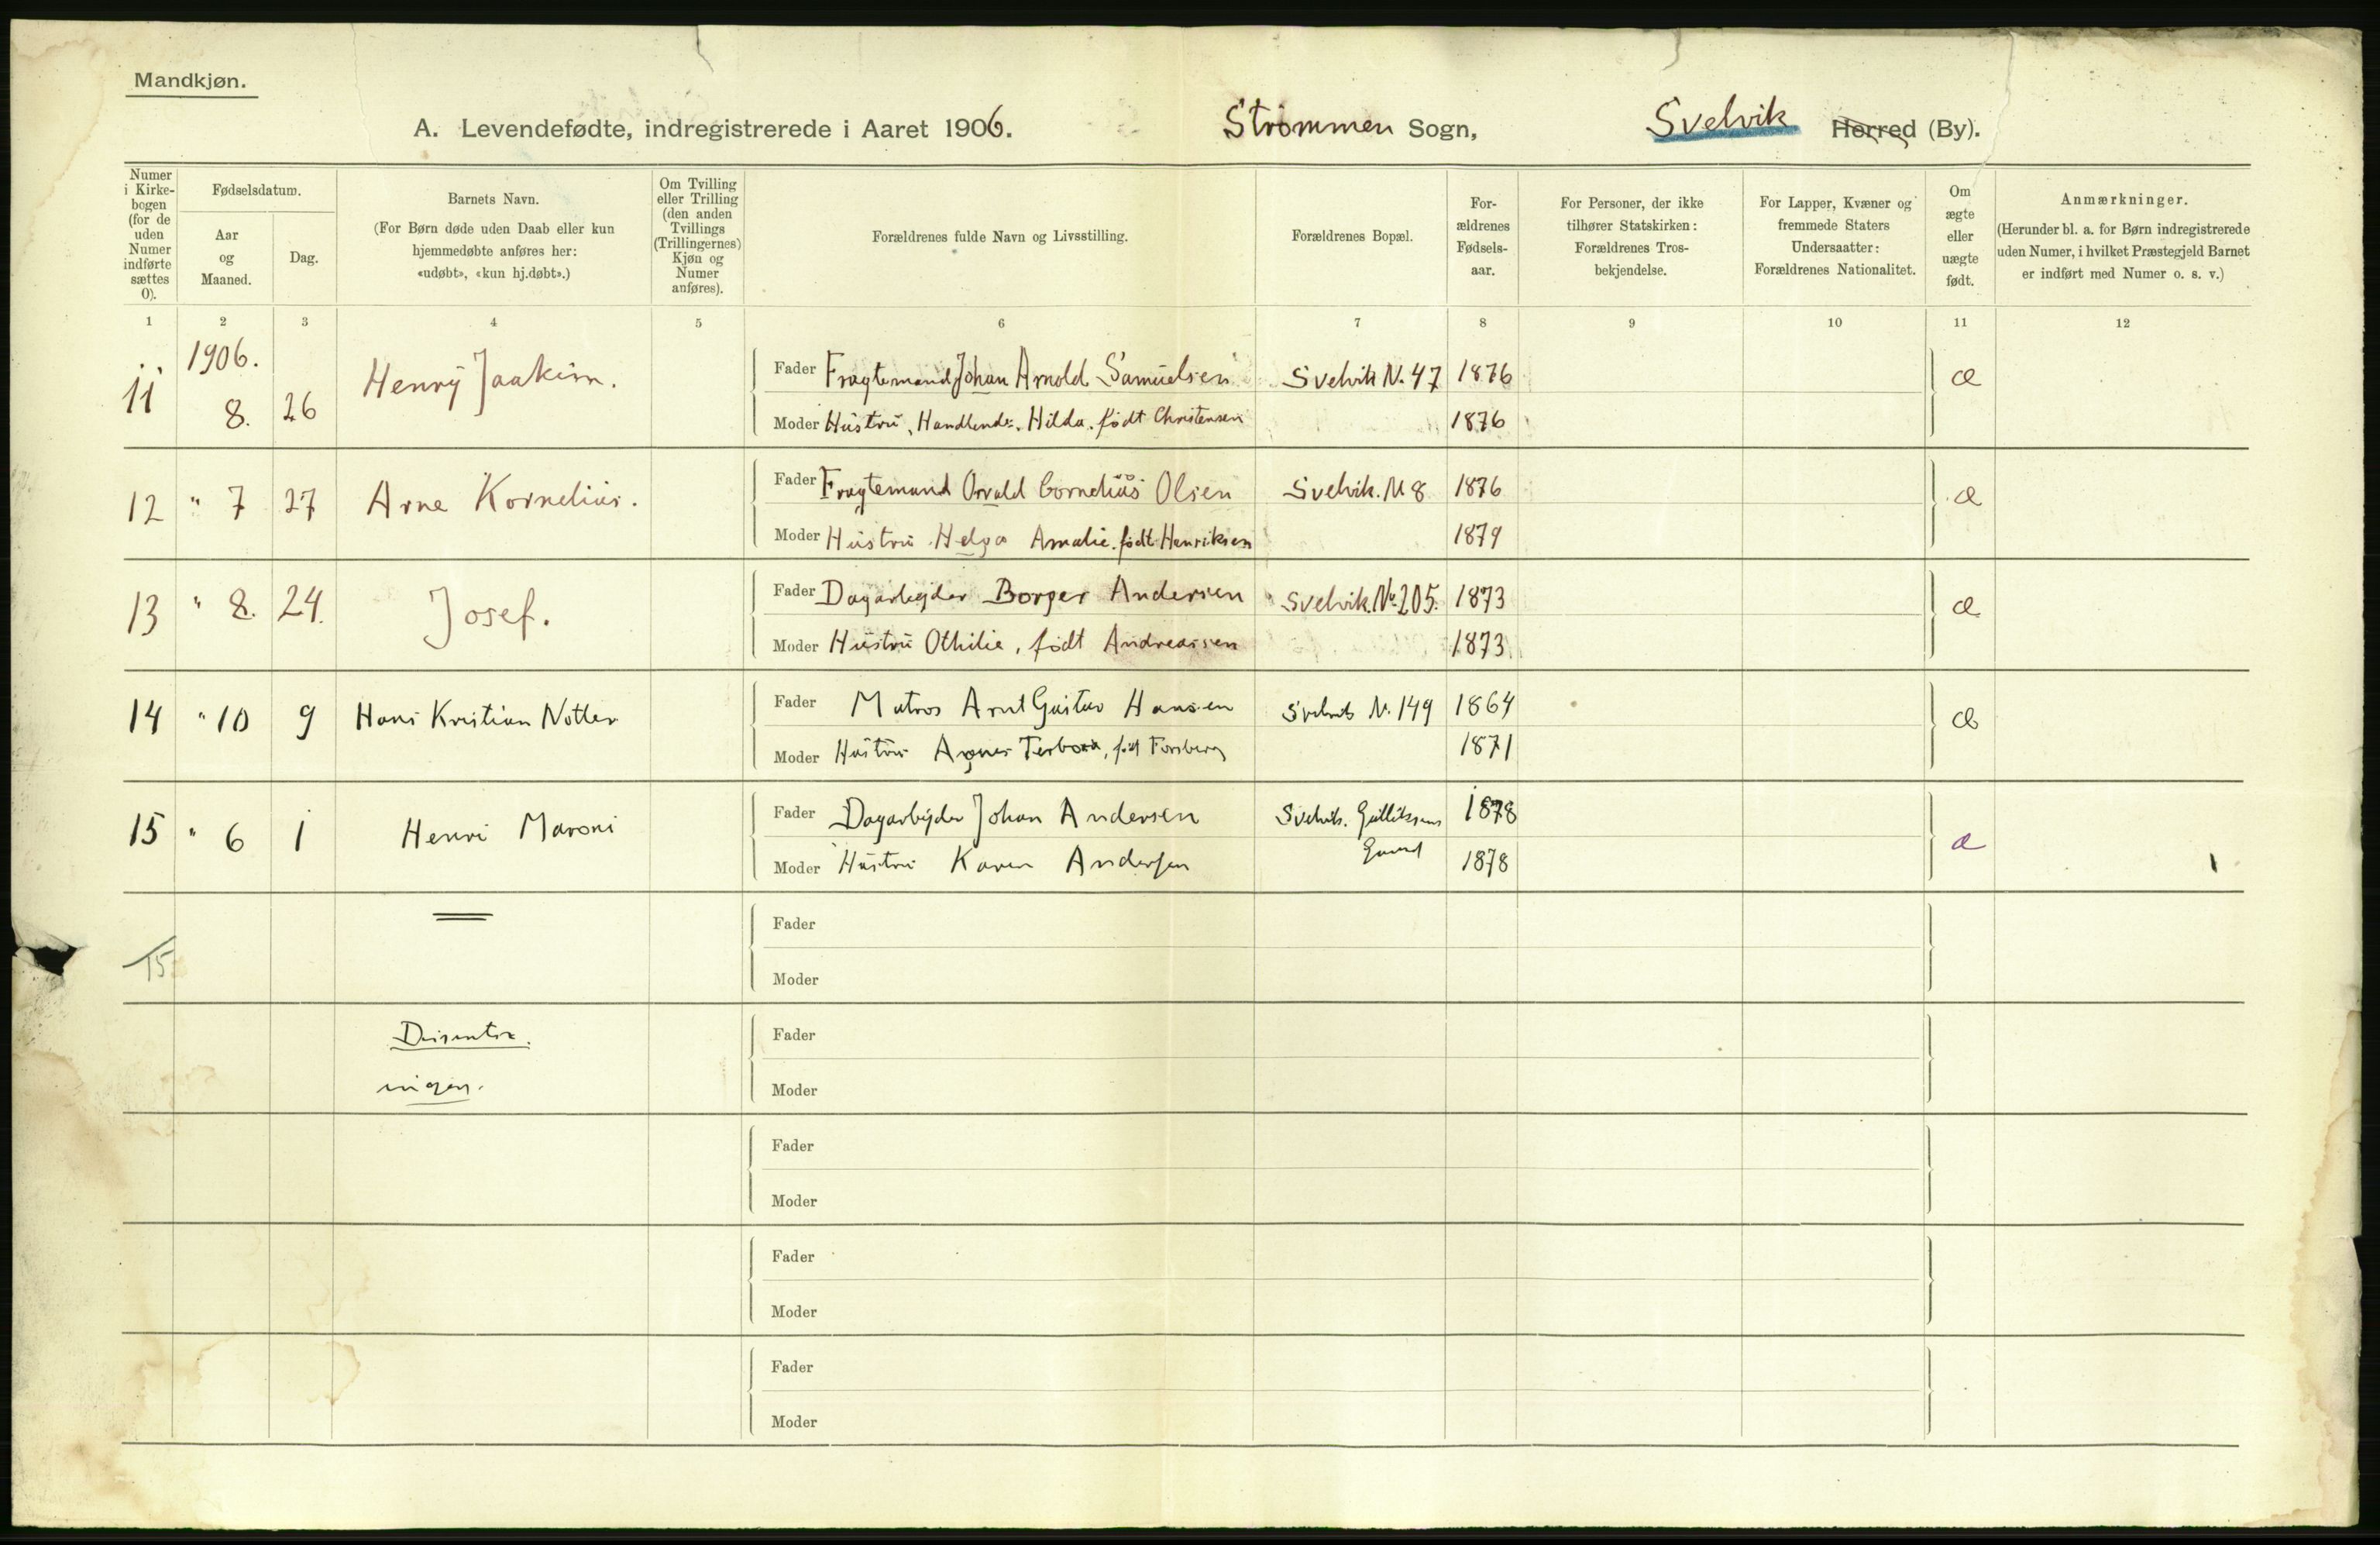 Mandkjøn.
A. Levendefødte, indregistrerede i Aaret 1906. Strømmen Sogn, Svelvik Herred (By).
Numer i Kirke-bogen (for de uden Numer indførte sættes 0).
Fødselsdatum.
Aar og Maaned.
Dag.
Barnets Navn.
(For Børn døde uden Daab eller kun hjemmedøbte anføres her: «udøbt», «kun hj.døbt».)
Om Tvilling eller Trilling (den anden Tvillings (Trillingernes) Kjøn og Numer anføres).
Forældrenes fulde Navn og Livsstilling.
Forældrenes Bopæl.
For-ældrenes Fødsels-aar.
For Personer, der ikke tilhører Statskirken: Forældrenes Tros-bekjendelse.
For Lapper, Kvæner og fremmede Staters Undersaatter: Forældrenes Nationalitet.
Om ægte eller uægte født.
Anmærkninger.
(Herunder bl. a. for Børn indregistrerede uden Numer, i hvilket Præstegjeld Barnet er indført med Numer o. s. v.)
1 2 3 4 5 6 7 8 9 10 11 12
1906.
11 8. 26 Henry Joakim. Fader Fragtemand Johan Arnold Samuelsen Svelvik N. 47 1876 æ
Moder Hustru, Handlende. Hilda. født Christensen 1876
12 " 7 27 Arne Kornelius. Fader Fragtemand Osvald Cornelius Olsen Svelvik. N 8 1876 æ
Moder Hustru Helga Amalie. født Henriksen 1879
13 " 8. 24. Josef. Fader Dagarbejder Borger Andersen Svelvik. No 205. 1873 æ
Moder Hustru Othilie, født Andreassen 1873
14 " 10 9 Hans Kristian Notler Fader Matros Arnt Gustav Hansen Svelvik N. 149 1864 æ
Moder Hustru Agnes Terbora, født Forsberg 1871
15 " 6 1 Henri Maroni Fader Dagarbejder Johan Andersen Svelvik. Gulliksens 1878 æ
Grund
Moder Hustru Karen Andersen 1878
Fader
15
Moder
Dissentere. Fader
ingen. Moder
Fader
Moder
Fader
Moder
Fader
Moder